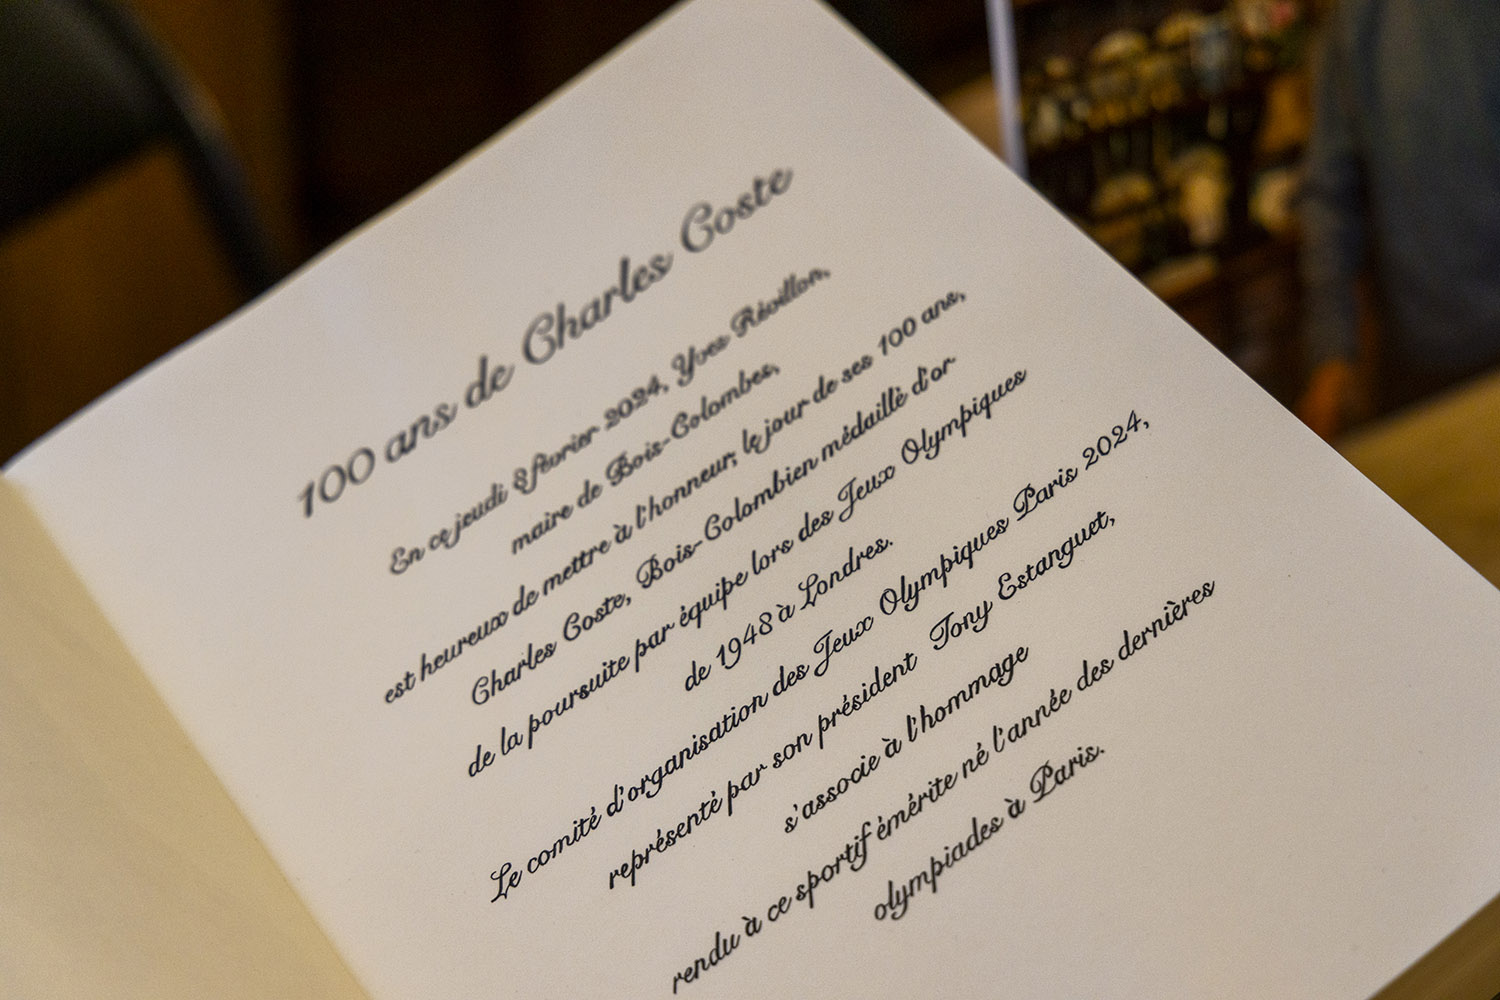 100 ans de Charles Coste
En ce jeudi 8 février 2024, Yves Révillon,
maire de Bois-Colombes,
est heureux de mettre à l'honneur, le jour de ses 100 ans,
Charles Coste, Bois-Colombien médaillé d'or
de la poursuite par équipe lors des Jeux Olympiques
de 1948 à Londres.
Le comité d'organisation des Jeux Olympiques Paris 2024,
représenté par son président Tony Estanguet,
s'associe à l'hommage
rendu à ce sportif émérite né l'année des dernières
olympiades à Paris.